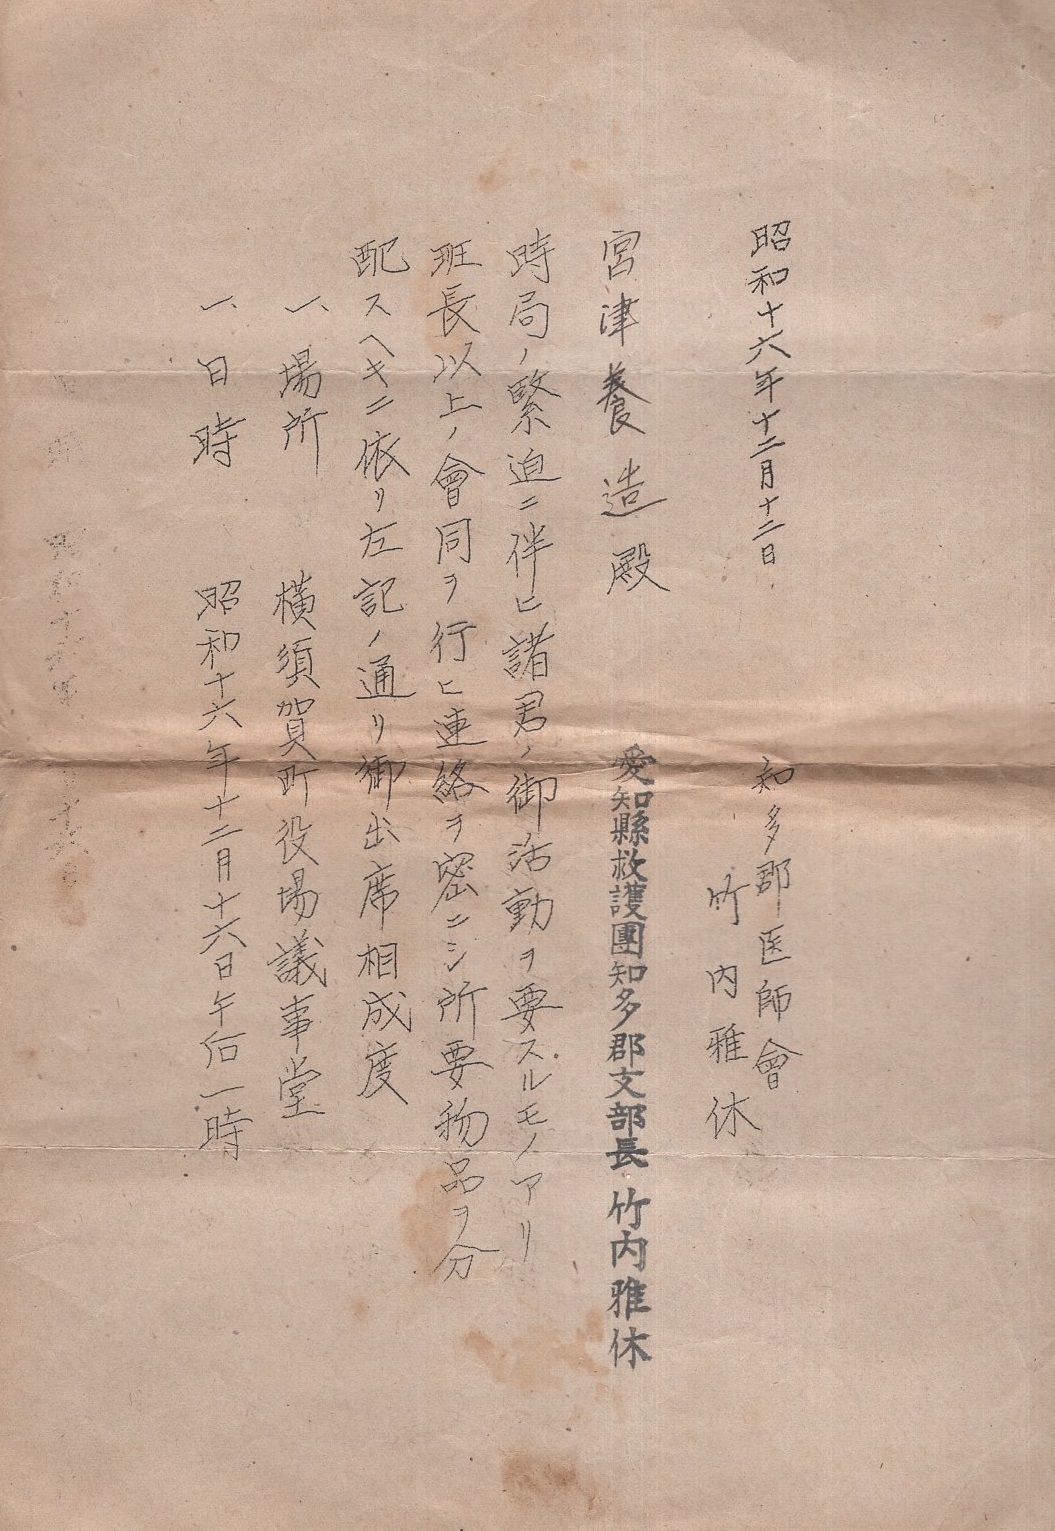 昭和十六年十二月十二日
知多郡医師會
竹内雅休
宮津養造殿
愛知縣救護團知多郡支部長 竹内雅休
時局ノ緊迫ニ伴ヒ諸君ノ御活動ヲ要スルモノアリ
班長以上ノ會同ヲ行ヒ連絡ヲ密ニシ所要物品ヲ分
配スヘキニ依リ左記ノ通リ御出席相成度
一、場所 横須賀町役場議事堂
一、日時 昭和十六年十二月十六日午后一時